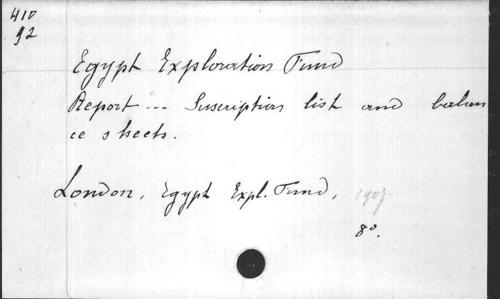 410
92
Egypt Exploration Fund
Report --- Suscription list and balan
ce sheets.
London, Egypt Expl. Fund, 1907
8°.